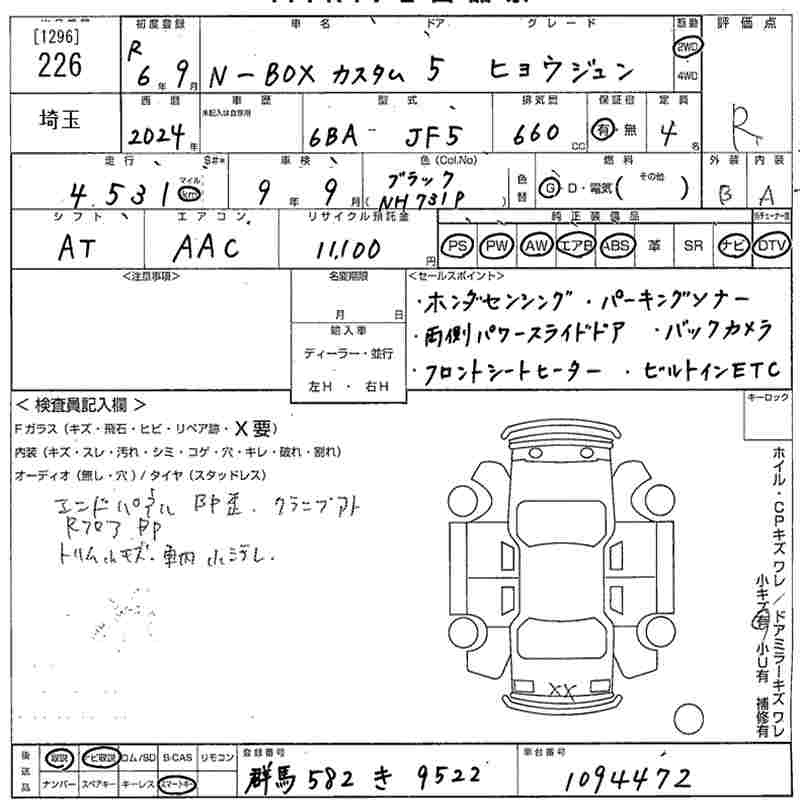 [1296]
226
埼玉
初度登録
R 6年 9月
車名 ドア グレード
N-BOX カスタム 5 ヒョウジュン
駆動
2WD
4WD
評価点
R
西暦
2024年
車歴
未記入は自家用
型式
6BA - JF5
排気量
660 CC
保証書
有・無
定員
4名
走行
4,531 マイル km
車検
9年 9月
色(Col.No)
ブラック
(NH731P)
色替
燃料
G・D・電気( その他 )
外装
B
内装
A
シフト
AT
エアコン
AAC
リサイクル預託金
11,100円
純正装備品
PS PW AW エアB ABS 革 SR ナビ DTV
<注意事項>
名変期限
月 日
輸入車
ディーラー・並行
左H・右H
<セールスポイント>
・ホンダセンシング ・パーキングソナー
・両側パワースライドドア ・バックカメラ
・フロントシートヒーター ・ビルトインETC
<検査員記入欄>
Fガラス(キズ・飛石・ヒビ・リペア跡・X要)
内装(キズ・スレ・汚れ・シミ・コゲ・穴・キレ・破れ・割れ)
オーディオ(無し・穴)/タイヤ(スタッドレス)
エンドパネル BP歪、クランプアト
Rフロア BP
トリム小キズ、車内小ヨゴレ、
キーロック
ホイル・CPキズ ワレ/ドアミラーキズ ワレ
小キズ有/小U有 補修有
XX
後送品
取説 ナビ取説 ロム/SD B-CAS リモコン
ナンバー スペアキー キーレス スマートキー
登録番号
群馬 582 き 9522
車台番号
1094472